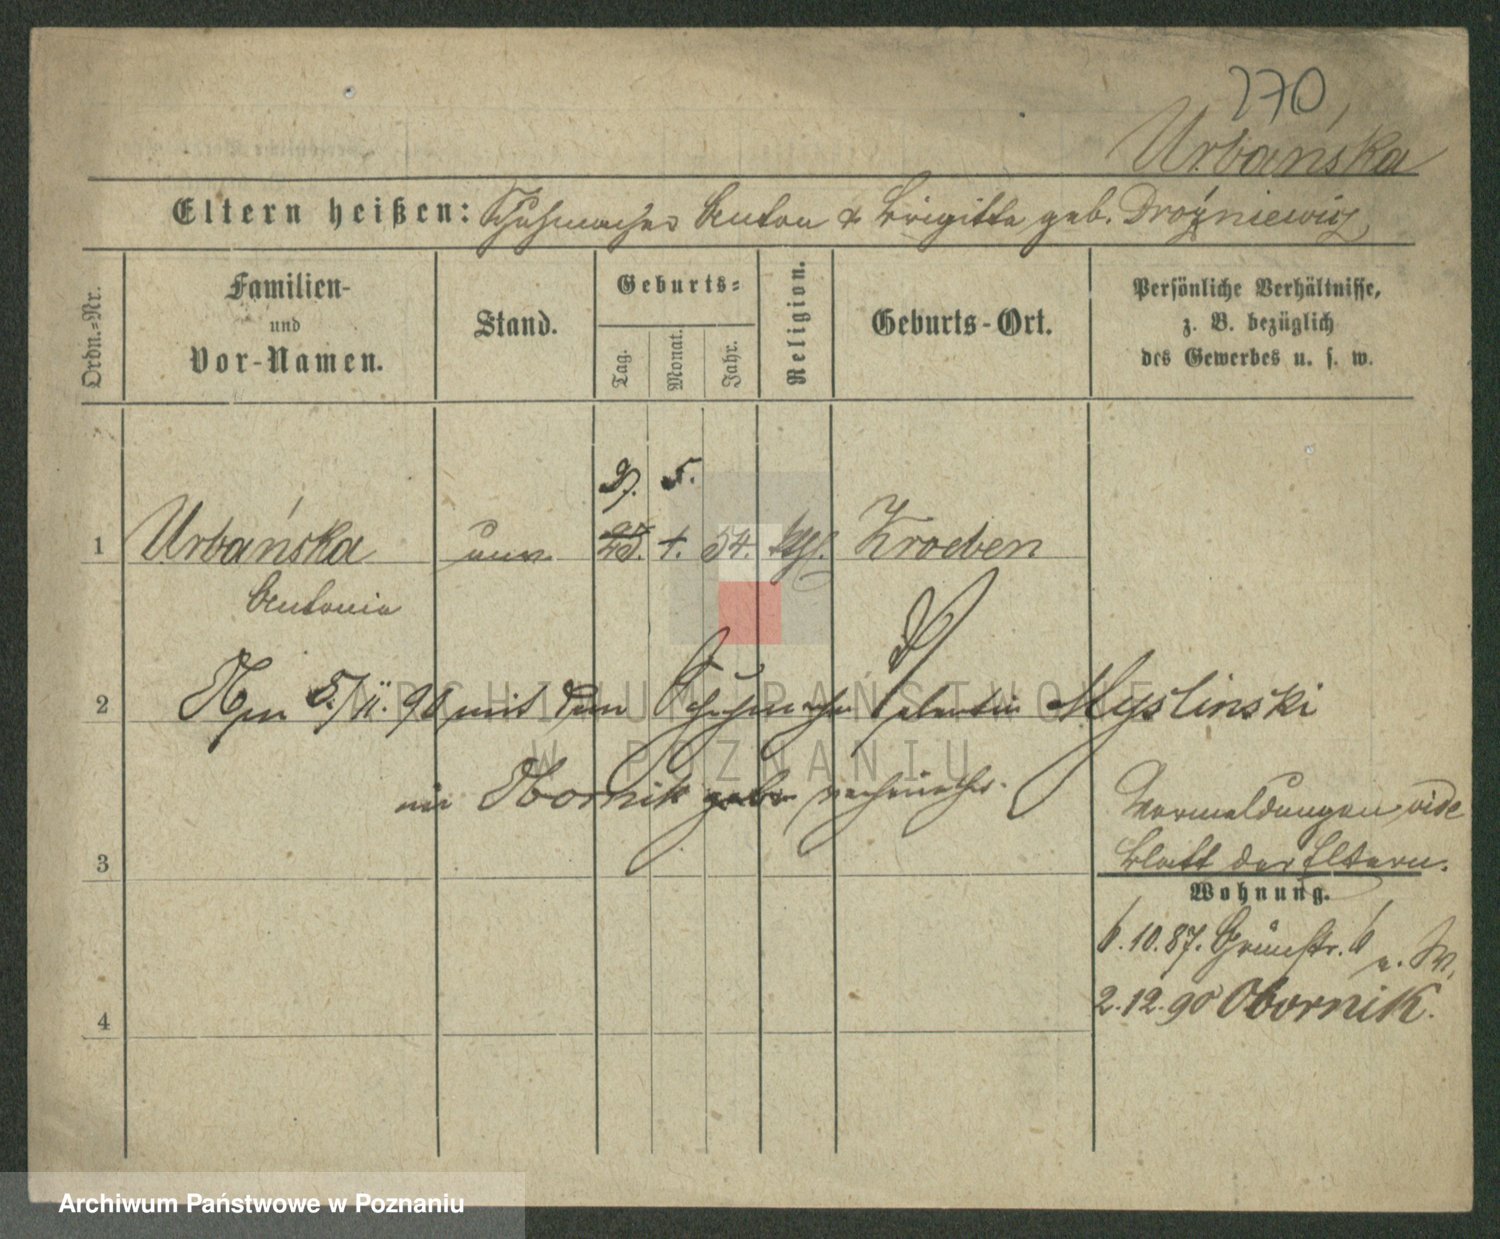 270
Urbańska
Eltern heißen: Schuhmacher Anton & Brigitta geb. Drożniewicz
Ordn.-Nr.
Familien-
und
Vor-Namen.
Stand.
Geburts-
Tag.
Monat.
Jahr.
Religion.
Geburts-Ort.
Persönliche Verhältnisse,
z. B. bezüglich
des Gewerbes u. s. w.
5.
1 Urbańska unv. 54. kth. Kroeben
Antonia
2 Am 5./11. 90 mit dem Schuhmacher Valentin Myslinski
in Obornik verheirathet.
Vermeldungen vide
3 Blatt der Eltern.
Wohnung.
6.10.87. Grünstr. 6
4 2.12.90 Obornik.
ARCHIWUM PAŃSTWOWE
W POZNANIU
Archiwum Państwowe w Poznaniu